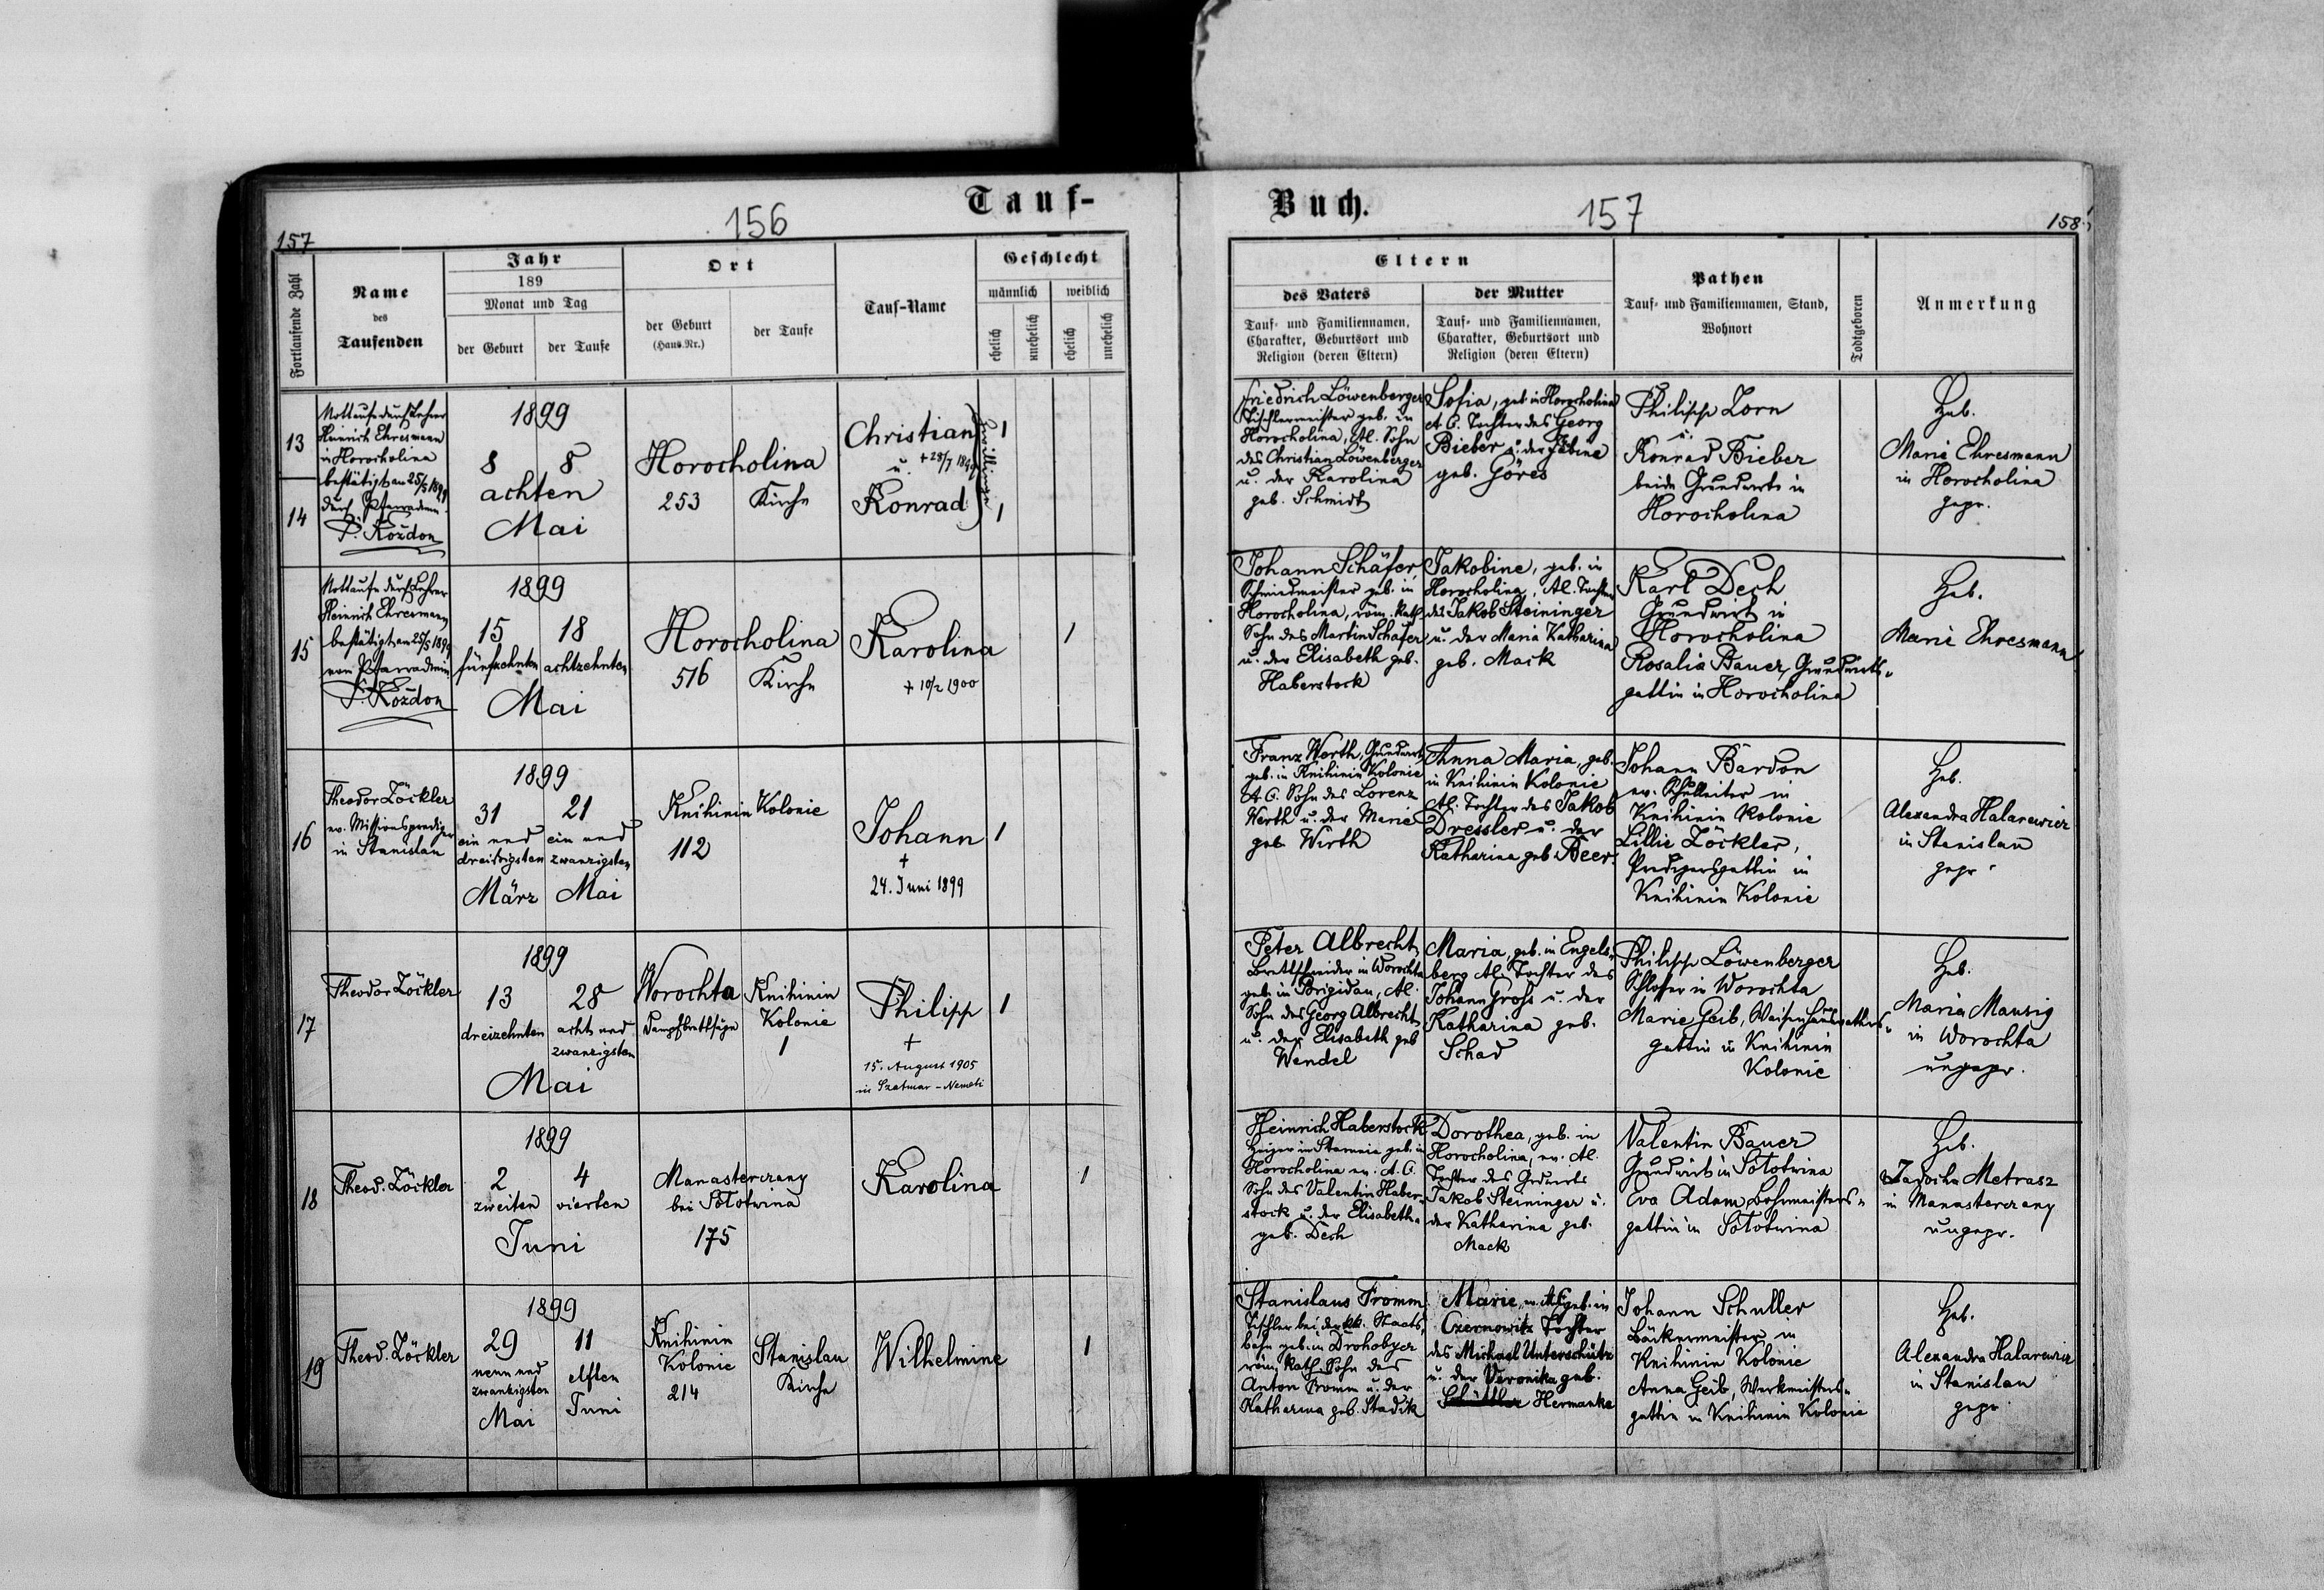 Tauf-
156
157
Fortlaufende Zahl
Name
des
Taufenden
Jahr
189
Monat und Tag
der Geburt
der Taufe
Ort
der Geburt
(Haus.Nr.)
der Taufe
Tauf-Name
Geschlecht
männlich
weiblich
ehelich
unehelich
ehelich
unehelich
13
14
Nottaufe durch Lehrer
Heinrich Ehresmann
in Horocholina
bestätigt am 25/5 1899
durch Pfarradmin.
P. Kozdon
1899
8 8
achten
Mai
Horocholina
253 Kirche
Christian
+ 28/7 1899
u.
Konrad
Zwillinge
1
1
15
Nottaufe durch Lehrer
Heinrich Ehresmann
bestätigt am 25/5 1899
von Pfarradmin
P. Kozdon
1899
15 18
fünfzehnten achtzehnten
Mai
Horocholina
516 Kirche
Karolina
+ 10/2 1900
1
16
Theodor Zöckler
ev. Missionsprediger
in Stanislau
1899
31 21
ein und ein und
dreißigsten zwanzigsten
März Mai
Knihinin Kolonie
112
Johann
+
24. Juni 1899
1
17
Theodor Zöckler
1899
13 28
dreizehnten acht und
zwanzigsten
Mai
Worochta
Dampfbrettsäge
Knihinin
Kolonie
1
Philipp
+
15. August 1905
in Szatmar-Nemeti
1
18
Theod. Zöckler
1899
2 4
zweiten vierten
Juni
Manasterczany
bei Sołotwina
175
Karolina
1
19
Theod. Zöckler
1899
29 11
neun und
zwanzigsten
elften
Mai Juni
Knihinin
Kolonie
214
Stanislau
Kirche
Wilhelmine
1
Buch.
157
158
Eltern
des Vaters
Tauf- und Familiennamen,
Charakter, Geburtsort und
Religion (deren Eltern)
der Mutter
Tauf- und Familiennamen,
Charakter, Geburtsort und
Religion (deren Eltern)
Pathen
Tauf- und Familiennamen, Stand,
Wohnort
Todtgeboren
Anmerkung
Friedrich Löwenberger
Tischlermeister geb. in
Horocholina, A.C. Sohn
des Christian Löwenberger
u. der Karolina
geb. Schmidt
Sofia, geb. in Horocholina
A.C. Tochter des Georg
Bieber u. der Sabina
geb. Göres
Philipp Zorn
u.
Konrad Bieber
beide Grundwirte in
Horocholina
Heb.
Marie Ehresmann
in Horocholina
gepr.
Johann Schäfer
Schmiedmeister geb. in
Horocholina, röm. kath
Sohn des Martin Schäfer
u. der Elisabeth geb.
Haberstock
Jakobine, geb. in
Horocholina, A.C. Tochter
des Jakob Steininger
u. der Maria Katharina
geb. Mack
Karl Dech
Grundwirt in
Horocholina
Rosalia Bauer, Grundwirts-
gattin in Horocholina
Heb.
Marie Ehresmann
Franz Werth, Grundwirt
geb. in Knihinin Kolonie
A.C. Sohn des Lorenz
Werth u. der Marie
geb. Wirth
Anna Maria, geb.
in Knihinin Kolonie
A.C. Tochter des Jakob
Dressler u. der
Katharina geb. Beer.
Johann Bardon
ev. Schulleiter in
Knihinin Kolonie
Lillie Zöckler,
Predigersgattin in
Knihinin Kolonie
Heb.
Alexandra Halarewicz
in Stanislau
gepr.
Peter Albrecht
Brettschneider in Worochta
geb. in Brigidau, A.C.
Sohn des Georg Albrecht
u. der Elisabeth geb
Wendel
Maria, geb. in Engels-
berg A.C. Tochter des
Johann Groß u. der
Katharina geb.
Schad
Philipp Löwenberger
Schlosser in Worochta
Marie Geib, Waisenhausvaters-
gattin in Knihinin
Kolonie
Heb.
Maria Mausig
in Worochta
ungepr.
Heinrich Haberstock
Heizer in Starunia geb. in
Horocholina ev. A.C.
Sohn des Valentin Haber-
stock u. der Elisabeth
geb. Dech
Dorothea, geb. in
Horocholina, ev. A.C.
Tochter des Grdwirts
Jakob Steininger u.
der Katharina geb.
Mack
Valentin Bauer
Grundwirt in Sołotwina
Eva Adam, Bohrmeisters-
gattin in Sołotwina
Heb.
Metrasz
in Manasterczany
ungepr.
Stanislaus Fromm
Tischler bei der k.k. Staats-
bahn geb. in Drohobycz
röm. kath. Sohn des
Anton Fromm u. der
Katharina geb. Stadik
Marie, geb. in
Czernowitz Tochter
des Michael Unterschütz
u. der Veronika geb.
Hermanka
Johann Schuller
Bäckermeister in
Knihinin Kolonie
Anna Geib, Werkmeisters-
gattin in Knihinin Kolonie
Heb.
Alexandra Halarewicz
in Stanislau
gepr